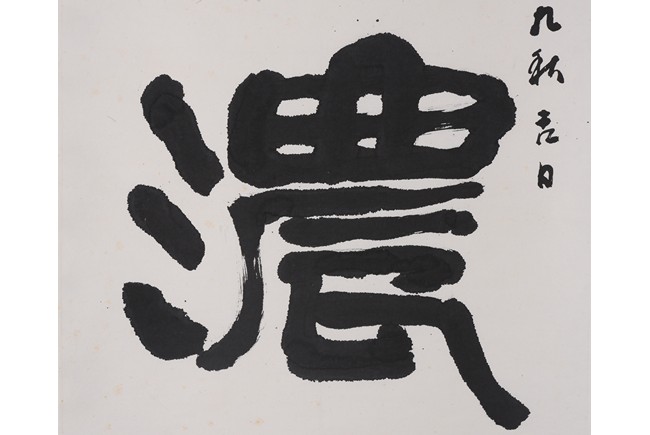 九秋吉日
濃